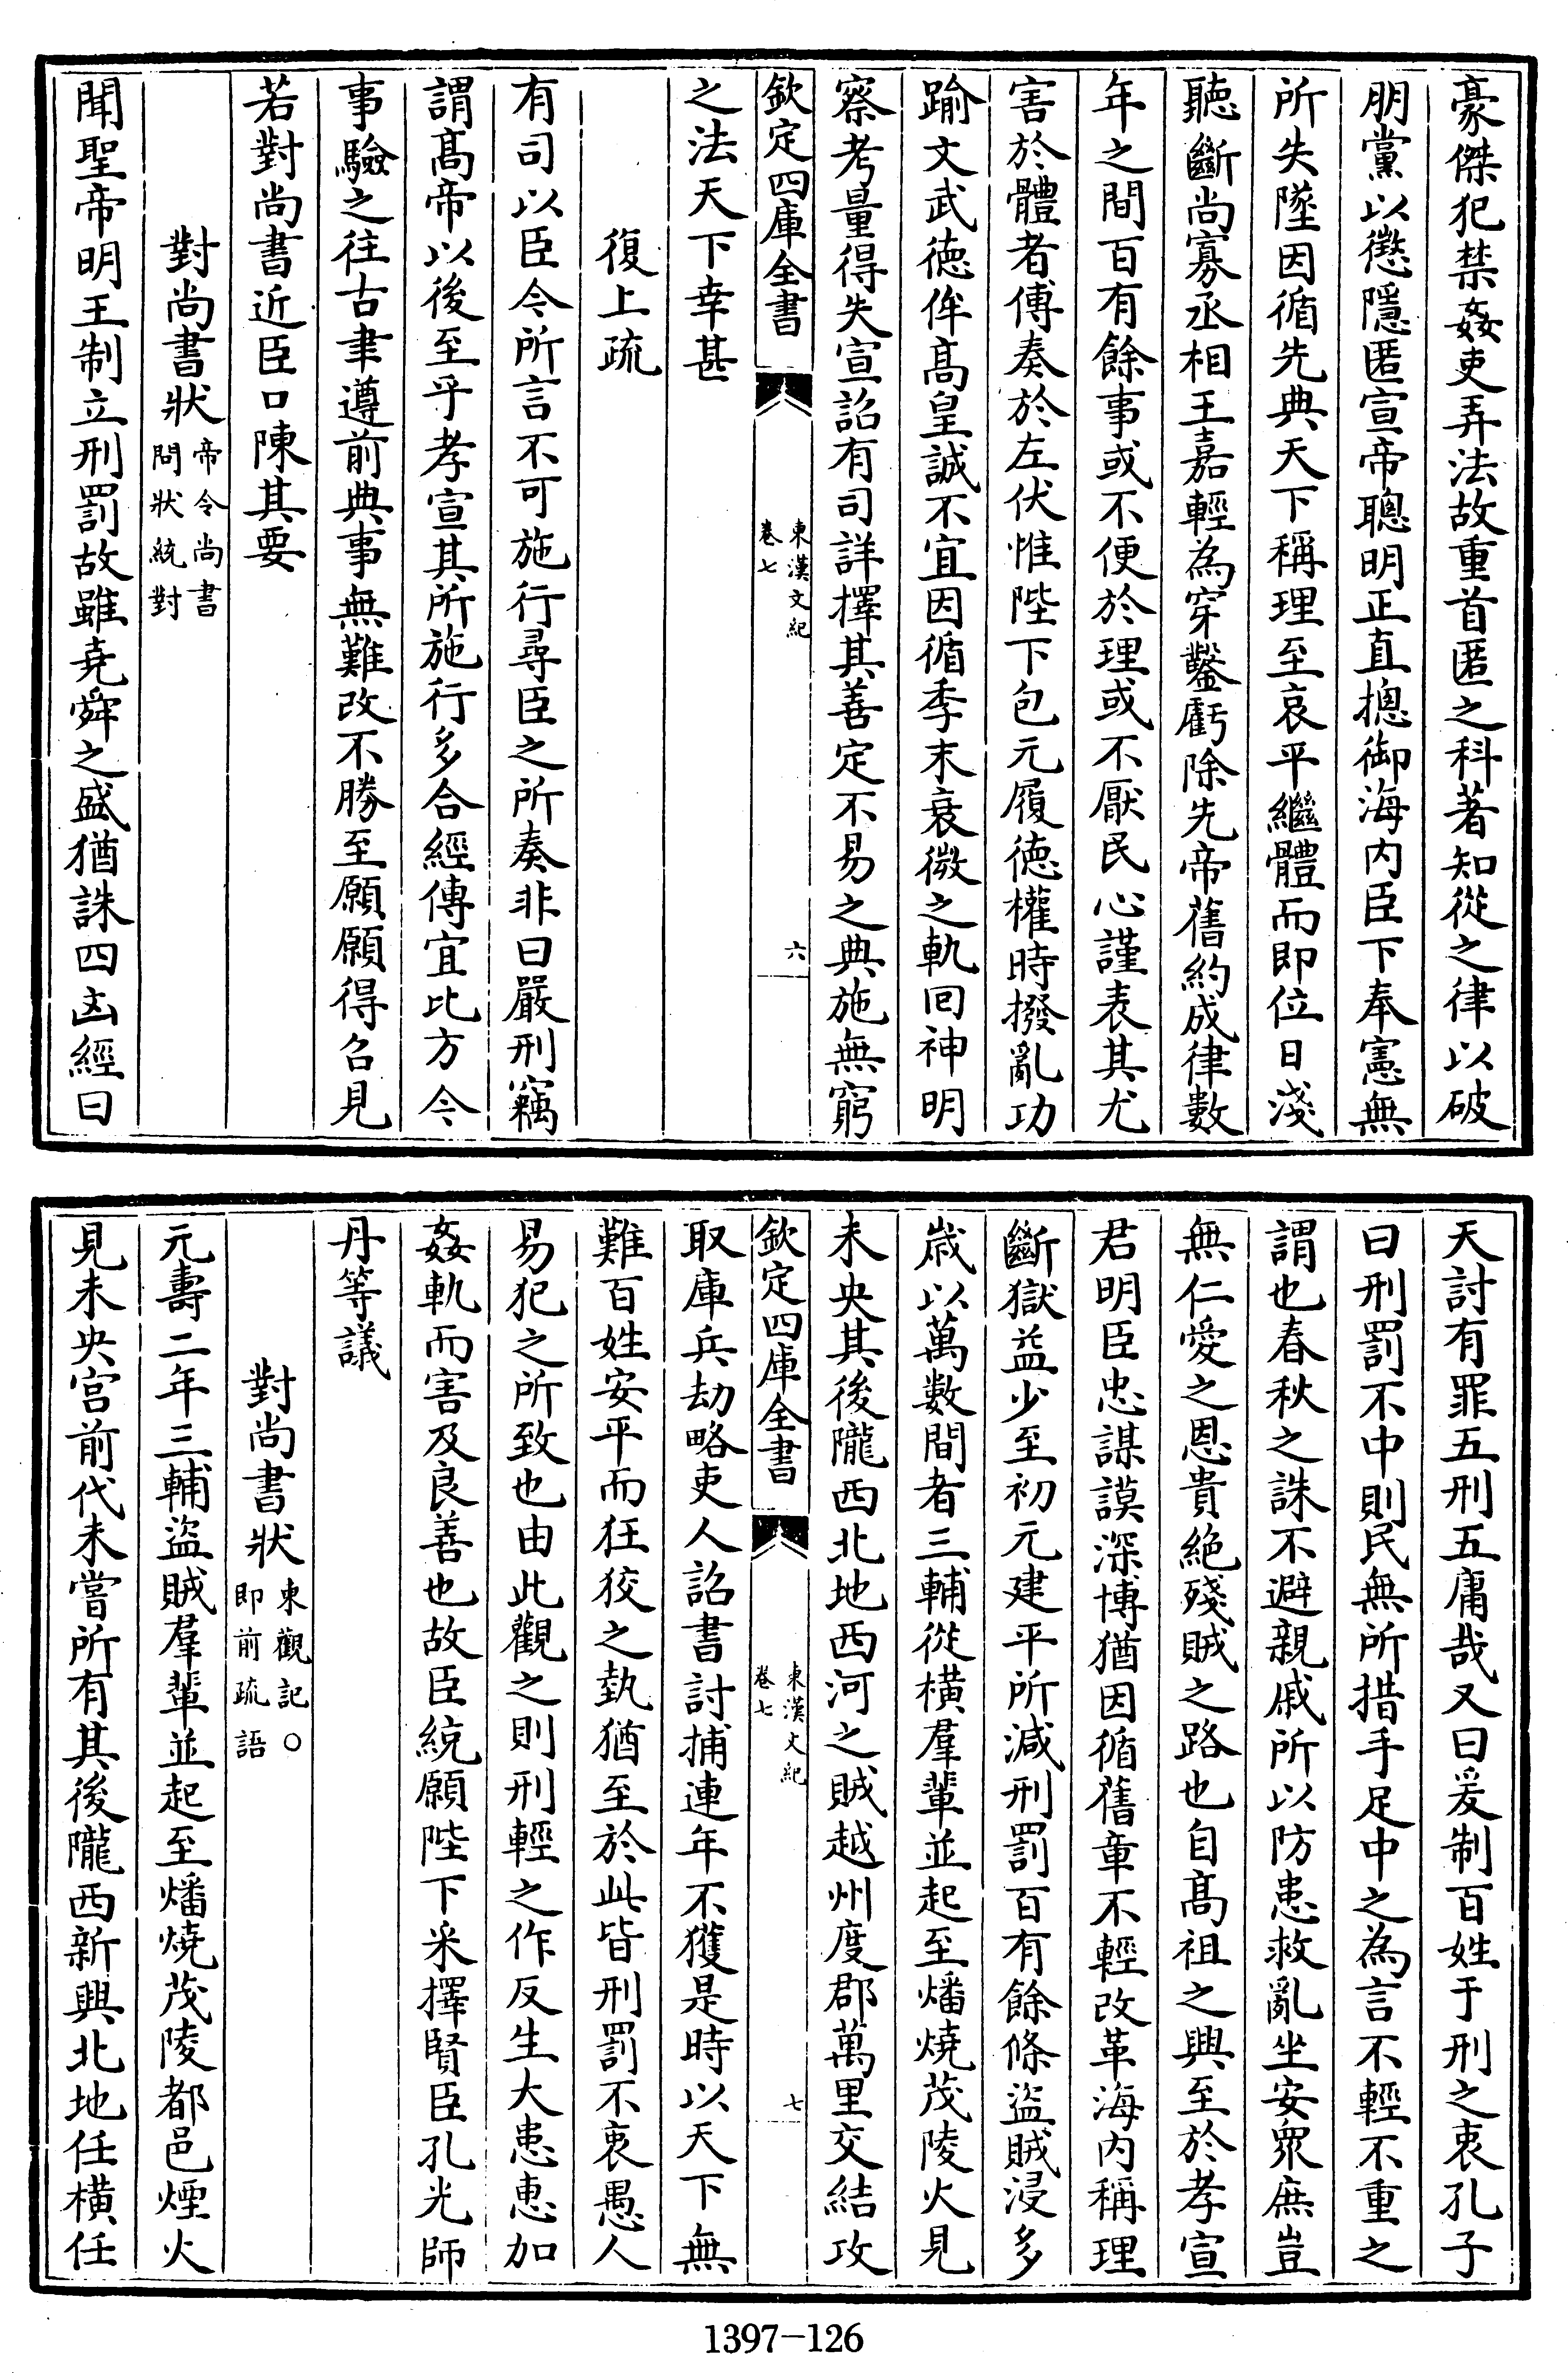 豪傑犯禁姦吏弄法故重首匿之科著知從之律以破
朋黨以懲隱匿宣帝聰明正直摠御海内臣下奉憲無
所失墜因循先典天下稱理至哀平繼體而即位日淺
聽斷尚寡丞相王嘉輕為穿鑿虧除先帝舊約成律數
年之間百有餘事或不便於理或不厭民心謹表其尤
害於體者傅奏於左伏惟陛下包元履徳權時撥亂功
踰文武徳侔髙皇誠不宜因循季末衰微之軌回神明
察考量得失宣詔有司詳擇其善定不易之典施無窮
欽定四庫全書
東漢文紀
卷七
六
之法天下幸甚
復上疏
有司以臣令所言不可施行尋臣之所奏非曰嚴刑竊
謂髙帝以後至乎孝宣其所施行多合經傳宜比方今
事驗之往古聿遵前典事無難改不勝至願願得召見
若對尚書近臣口陳其要
對尚書狀帝令尚書
問狀統對
聞聖帝明王制立刑罰故雖堯舜之盛猶誅四凶經曰
天討有罪五刑五庸哉又曰爰制百姓于刑之衷孔子
曰刑罰不中則民無所措手足中之為言不輕不重之
謂也春秋之誅不避親戚所以防患救亂坐安衆庶豈
無仁愛之恩貴絶殘賊之路也自髙祖之興至於孝宣
君明臣忠謀謨深博猶因循舊章不輕改革海内稱理
斷獄益少至初元建平所減刑罰百有餘條盜賊浸多
歳以萬數間者三輔從横羣輩並起至燔燒茂陵火見
未央其後隴西北地西河之賊越州度郡萬里交結攻
欽定四庫全書
東漢文紀
卷七
七
取庫兵劫略吏人詔書討捕連年不獲是時以天下無
難百姓安平而狂狡之埶猶至於此皆刑罰不衷愚人
易犯之所致也由此觀之則刑輕之作反生大患恵加
姦軌而害及良善也故臣統願陛下采擇賢臣孔光師
丹等議
對尚書狀東觀記○
即前疏語
元壽二年三輔盜賊羣輩並起至燔燒茂陵都邑煙火
見未央宫前代未嘗所有其後隴西新興北地任横任
1397-126